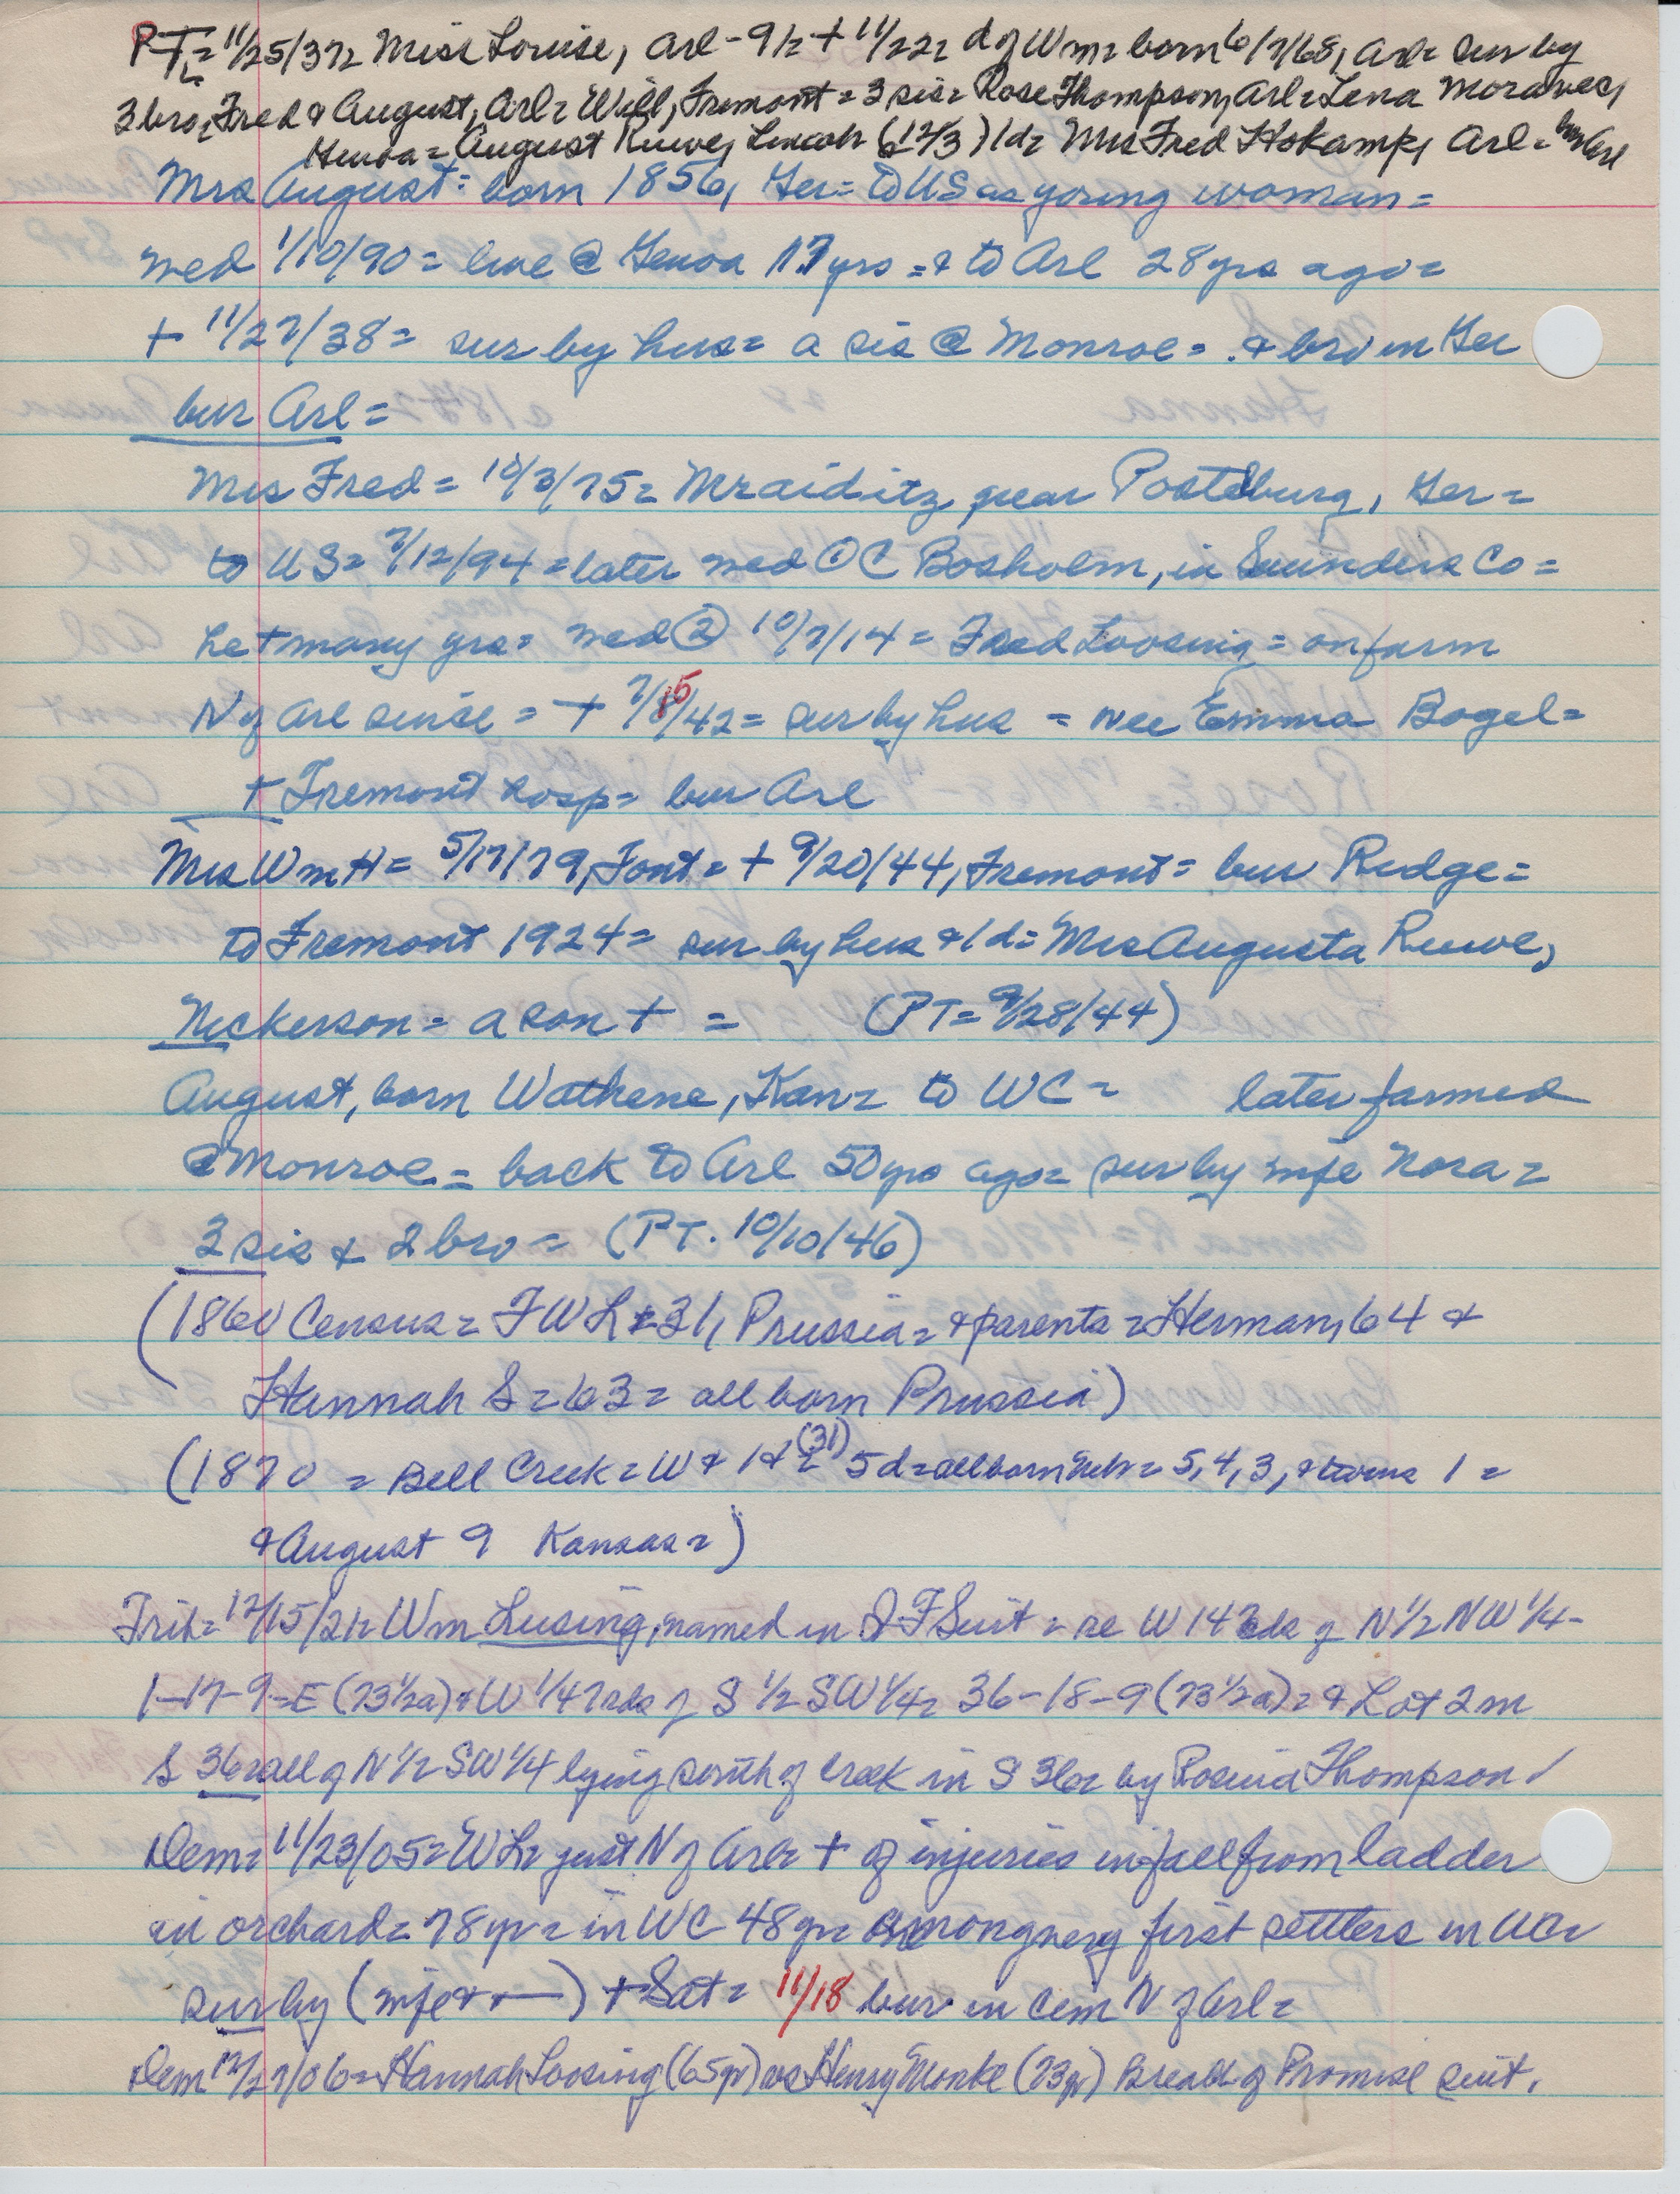 PT= 11/25/37= Miss Louise, Arl - 9/2 + 11/22= d of Wm= born 6/7/68, Arl= sur by
3 bro, Fred & August, Arl= Will, Fremont= 3 sis= Rose Thompson, Arl= Lena Moravec,
Genoa= August Ruwe, Lincoln (12/3) 1d= Mrs Fred Hskamp, Arl= bur Arl
Mrs August= born 1856, Ger= to US as young woman=
med 1/10/90= live @ Genoa 17 yrs= & to Arl 28 yrs ago=
+ 11/27/38= sur by hus= a sis @ Monroe= & bro in Ger
bur Arl=
Mrs Fred= 10/3/75= Mraiditz, near Postelburg, Ger=
to US= 7/12/94= later med ① C Bosholm, in Saunders Co=
he + many yrs= med ② 10/7/14= Fred Loosing= on farm
N of Arl since= + 7/15/42= sur by hus = nee Emma Bogel=
+ Fremont hosp= bur Arl
Mrs Wm H= 5/17/79, Font= + 9/20/44, Fremont= bur Ridge=
to Fremont 1924= sur by hus & 1d= Mrs Augusta Ruwe,
Nickerson= a son + = (PT= 9/28/44)
August, born Wathena, Kan= to WC= later farmed
@ Monroe= back to Arl 50 yrs ago= sur by wife Nora=
3 sis & 2 bro= (PT. 10/10/46)
(1860 Census= FWL= 31, Prussia= & parents= Herman, 64 &
Hannah S= 63= all born Prussia)
(1870 = Bell Creek= W & (31) 5d= all born Neb= 5, 4, 3, & twins 1=
& August 9 Kansas=)
Trib= 12/15/21= Wm Lusing, named in QT Suit= re W 147 rds of N 1/2 NW 1/4-
1-17-9= E (73 1/2a) & W 1/47 rds of S 1/2 SW 1/4= 36-18-9 (73 1/2a)= & Lot 2 in
S 36= all of N 1/2 SW 1/4 lying south of creek in S 36= by Rosina Thompson
Dem= 11/23/05= WL= just N of Arl= + of injuries in fall from ladder
in orchard= 78 yr= in WC 48 yr= among very first settlers in WC=
sur by (wife + —) + Sat= 11/18 bur in cem N of Arl=
Dem 12/27/06= Hannah Loosing (65yr) vs Henry Monke (73yr) Breach of Promise suit.